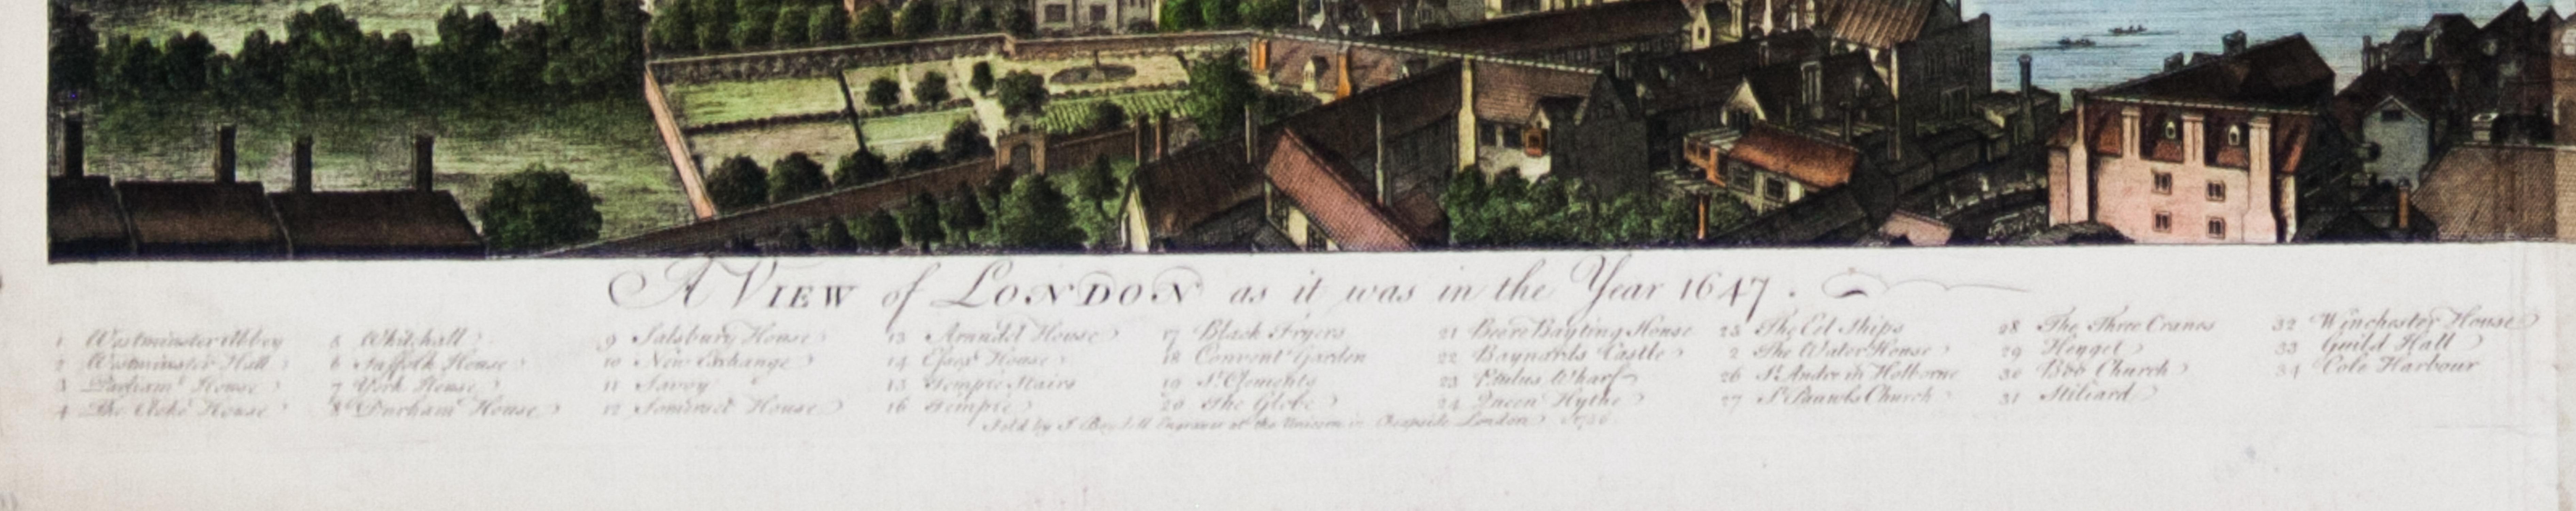 A VIEW of LONDON as it was in the Year 1647.
1 Westminster Abbey
2 Westminster Hall
3 Parliamt House
4 The Cloke House
5 Whithall
6 Suffolk House
7 York House
8 Durham House
9 Salsbury House
10 New Exchange
11 Savoy
12 Somerset House
13 Arundel House
14 Essex House
15 Temple Stairs
16 Temple
17 Black Fryers
18 Convent Garden
19 St Clements
20 The Globe
21 Beere Bayting House
22 Baynards Castle
23 Paulus Wharf
24 Queen Hythe
25 The Eel Ships
2 The Water House
26 St Andre in Holborne
27 St Pauwls Church
28 The Three Cranes
29 Heyget
30 Boo Church
31 Stiliard
32 Winchester House
33 Guild Hall
34 Cole Harbour
Sold by J Boydell Engraver at the Unicorn in Cheapside London